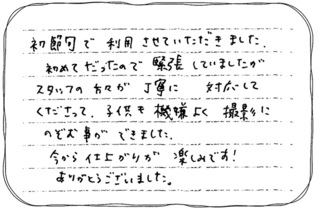 初節句で 利用 させていただきました。
初めてだったので 緊張 していましたが
スタッフの 方々が 丁寧に 対応して
くださって、子供も 機嫌よく 撮影に
のぞむ事が できました。
今から 仕上がりが 楽しみです!
ありがとうございました。